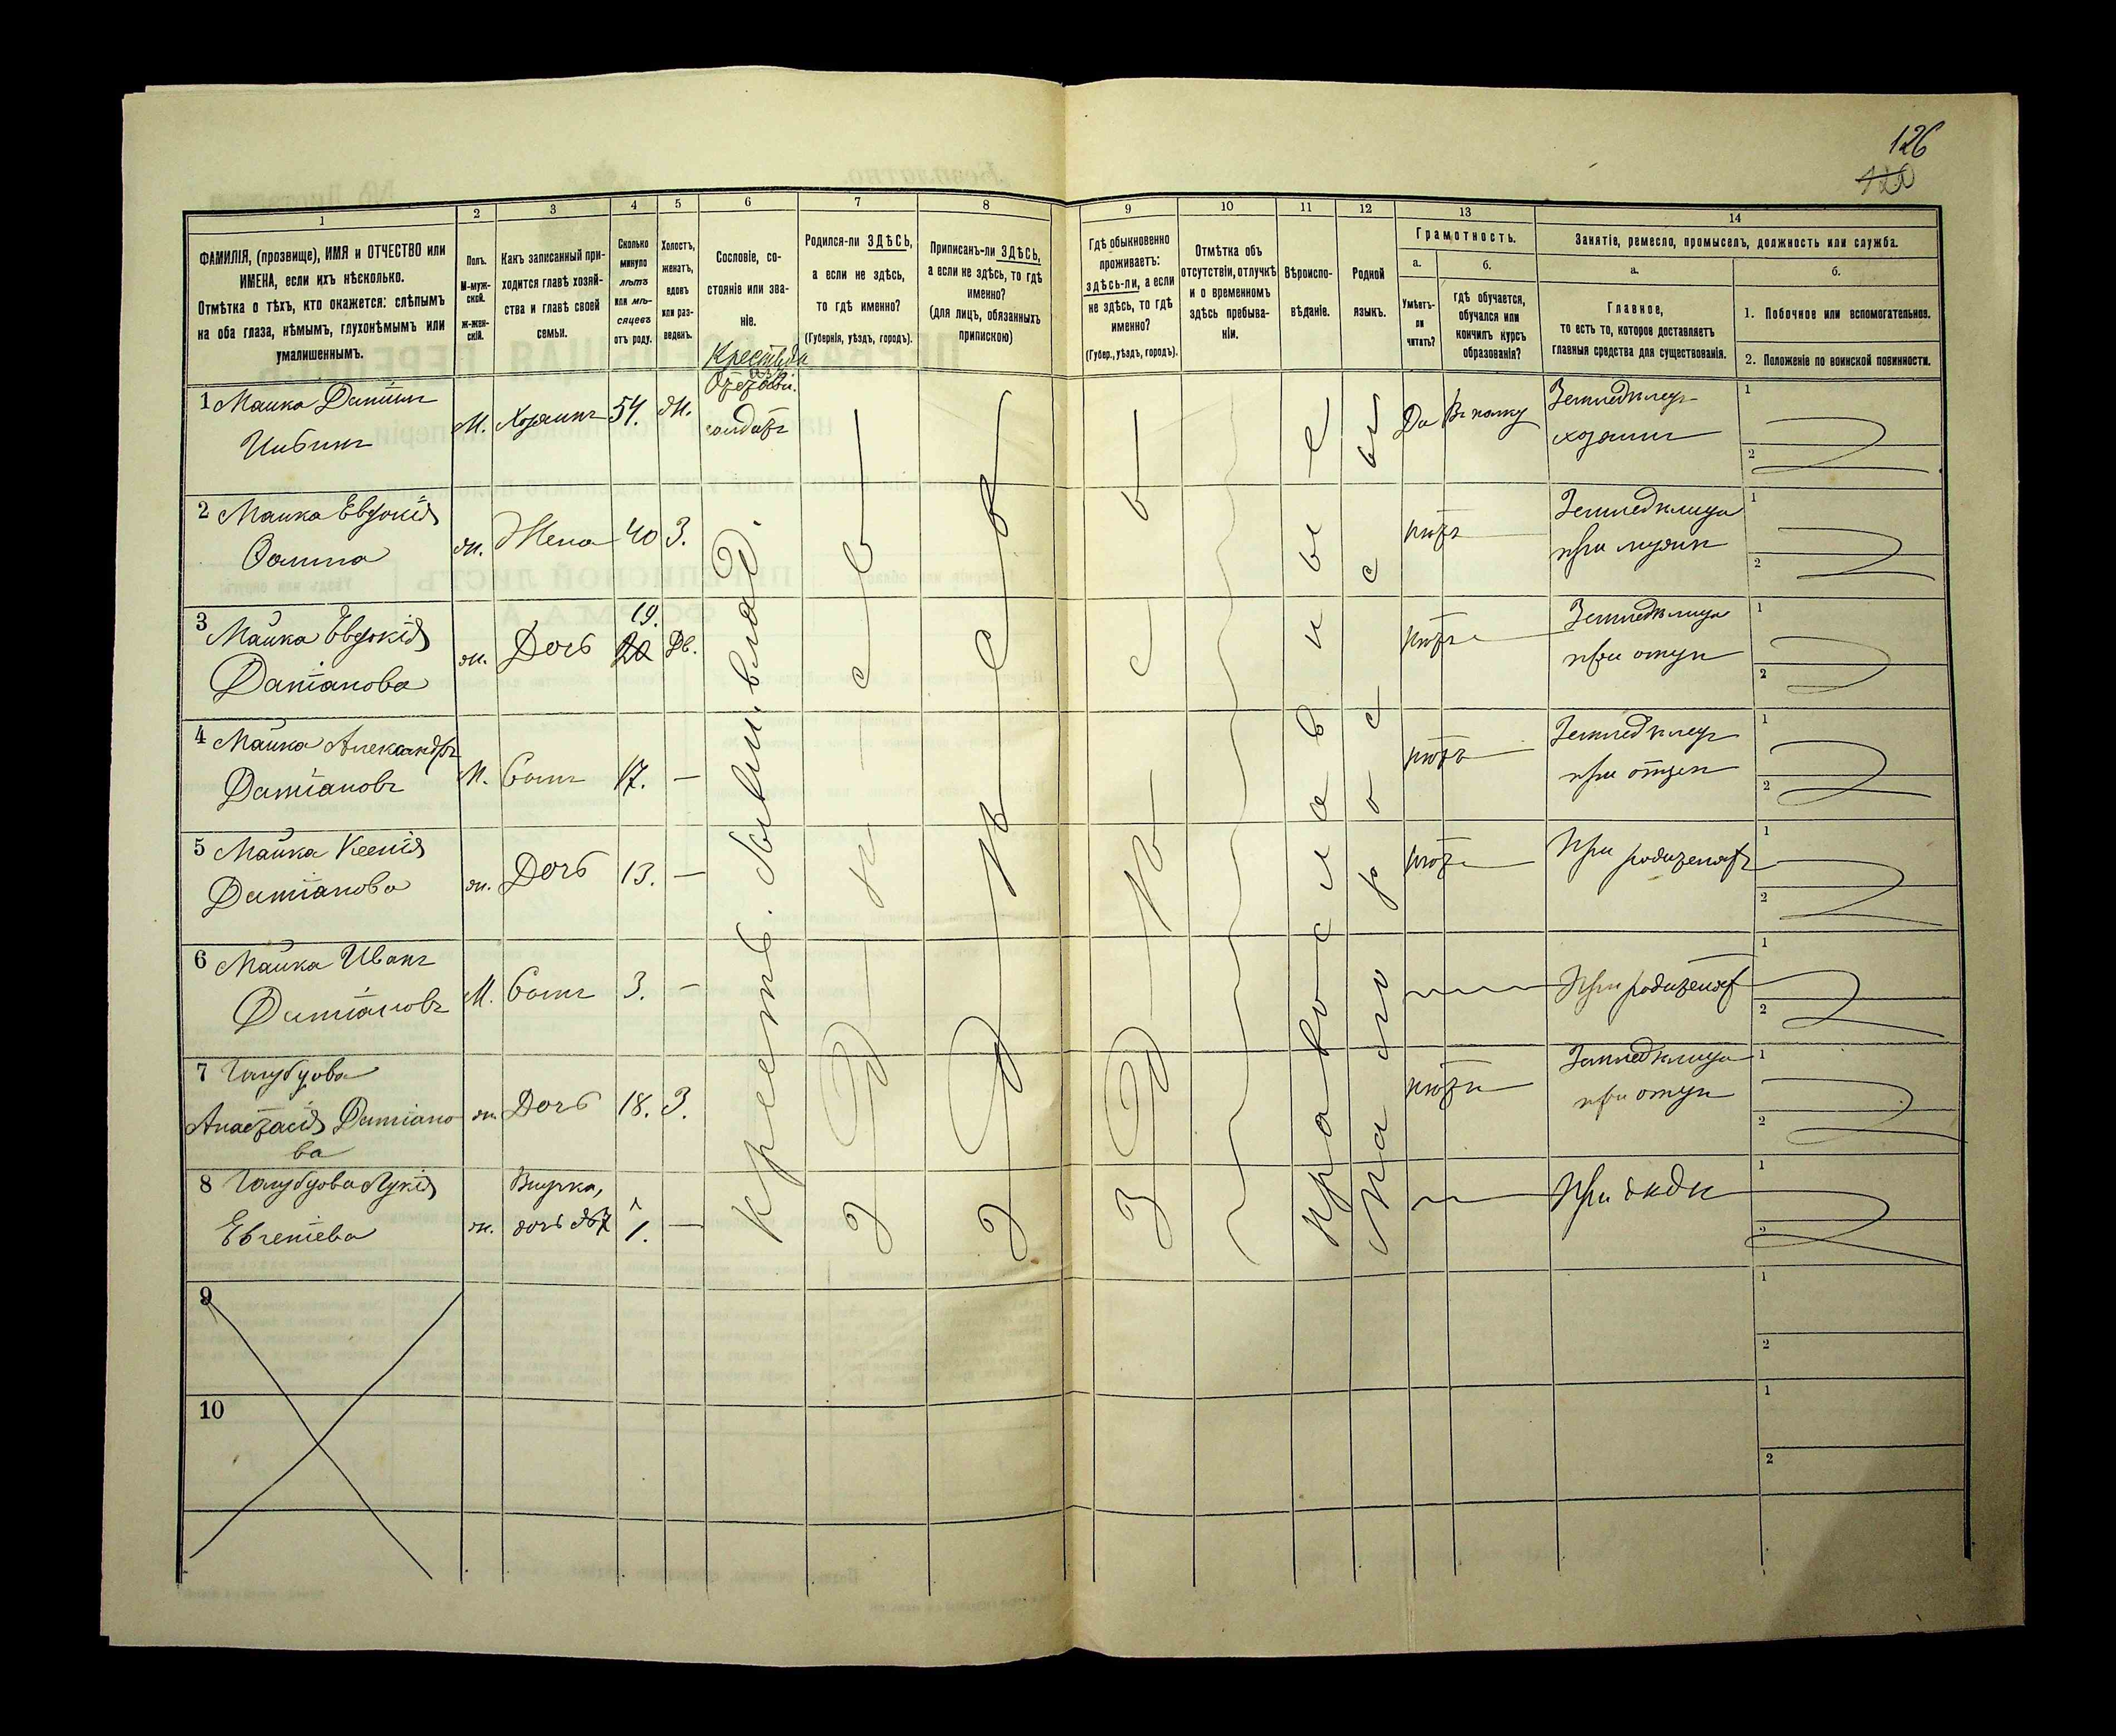 126
120
1
2
3
4
5
6
7
8
9
10
11
12
13
14
ФАМИЛІЯ, (прозвище), ИМЯ и ОТЧЕСТВО или
ИМЕНА, если ихъ нѣсколько.
Отмѣтка о тѣхъ, кто окажется: слѣпымъ
на оба глаза, нѣмымъ, глухонѣмымъ или
умалишеннымъ.
Полъ.
М-муж-
ской.
ж-жен-
скій.
Какъ записанный при-
ходится главѣ хозяй-
ства и главѣ своей
семьи.
Сколько
минуло
лѣтъ
или мѣ-
сяцевъ
отъ роду.
Холостъ,
женатъ,
вдовъ
или раз-
веденъ.
Сословіе, со-
стояніе или зва-
ніе.
Родился-ли ЗДѢСЬ,
а если не здѣсь,
то гдѣ именно?
(Губернія, уѣздъ, городъ).
Приписанъ-ли ЗДѢСЬ,
а если не здѣсь, то гдѣ
именно?
(для лицъ, обязанныхъ
припискою)
Гдѣ обыкновенно
проживаетъ:
здѣсь-ли, а если
не здѣсь, то гдѣ
именно?
(Губер., уѣздъ, городъ).
Отмѣтка объ
отсутствіи, отлучкѣ
и о временномъ
здѣсь пребыва-
ніи.
Вѣроиспо-
вѣданіе.
Родной
языкъ.
Грамотность.
а.
Умѣетъ-
ли
читать?
б.
гдѣ обучается,
обучался или
кончилъ курсъ
образованія?
Занятіе, ремесло, промыселъ, должность или служба.
а.
Главное,
то есть то, которое доставляетъ
главныя средства для существованія.
б.
1. Побочное или вспомогательное.
2. Положеніе по воинской повинности.
1 Маика
М. Хозяинъ 54. Ж.
солдатъ
Да Въ полку
Земледѣлецъ
хозяинъ
1
2
2 Маика Евдокія
Фомина
ж. Жена 40 З.
нѣтъ
Земледѣлица
при мужѣ
1
2
3 Майка Евдокія
Даміанова
ж. Дочь 19. 20 Дв.
нѣтъ
Земледѣлица
при отцѣ
1
2
4 Майка Александръ
Даміановъ
М. Сынъ 17. —
нѣтъ
Земледѣлецъ
при отцѣ
1
2
5 Майка Ксенія
Даміанова
ж. Дочь 13. —
нѣтъ
При родителяхъ
1
2
6 Майка Иванъ
Даміановъ
М. Сынъ 3. —
При родителяхъ
1
2
7 Голубцова
Анастасія Даміано
ва
ж. Дочь 18. З.
нѣтъ
Земледѣлица
при отцѣ
1
2
8 Голубцова Лукія
Евгеніева
ж. Внучка,
дочь №7 1. —
При дѣдѣ
1
2
Крестьян.
Крестъ. бывш. влад.
Здѣсь
Здѣсь
Здѣсь
Православные
Малороссы
9
1
2
10
1
2